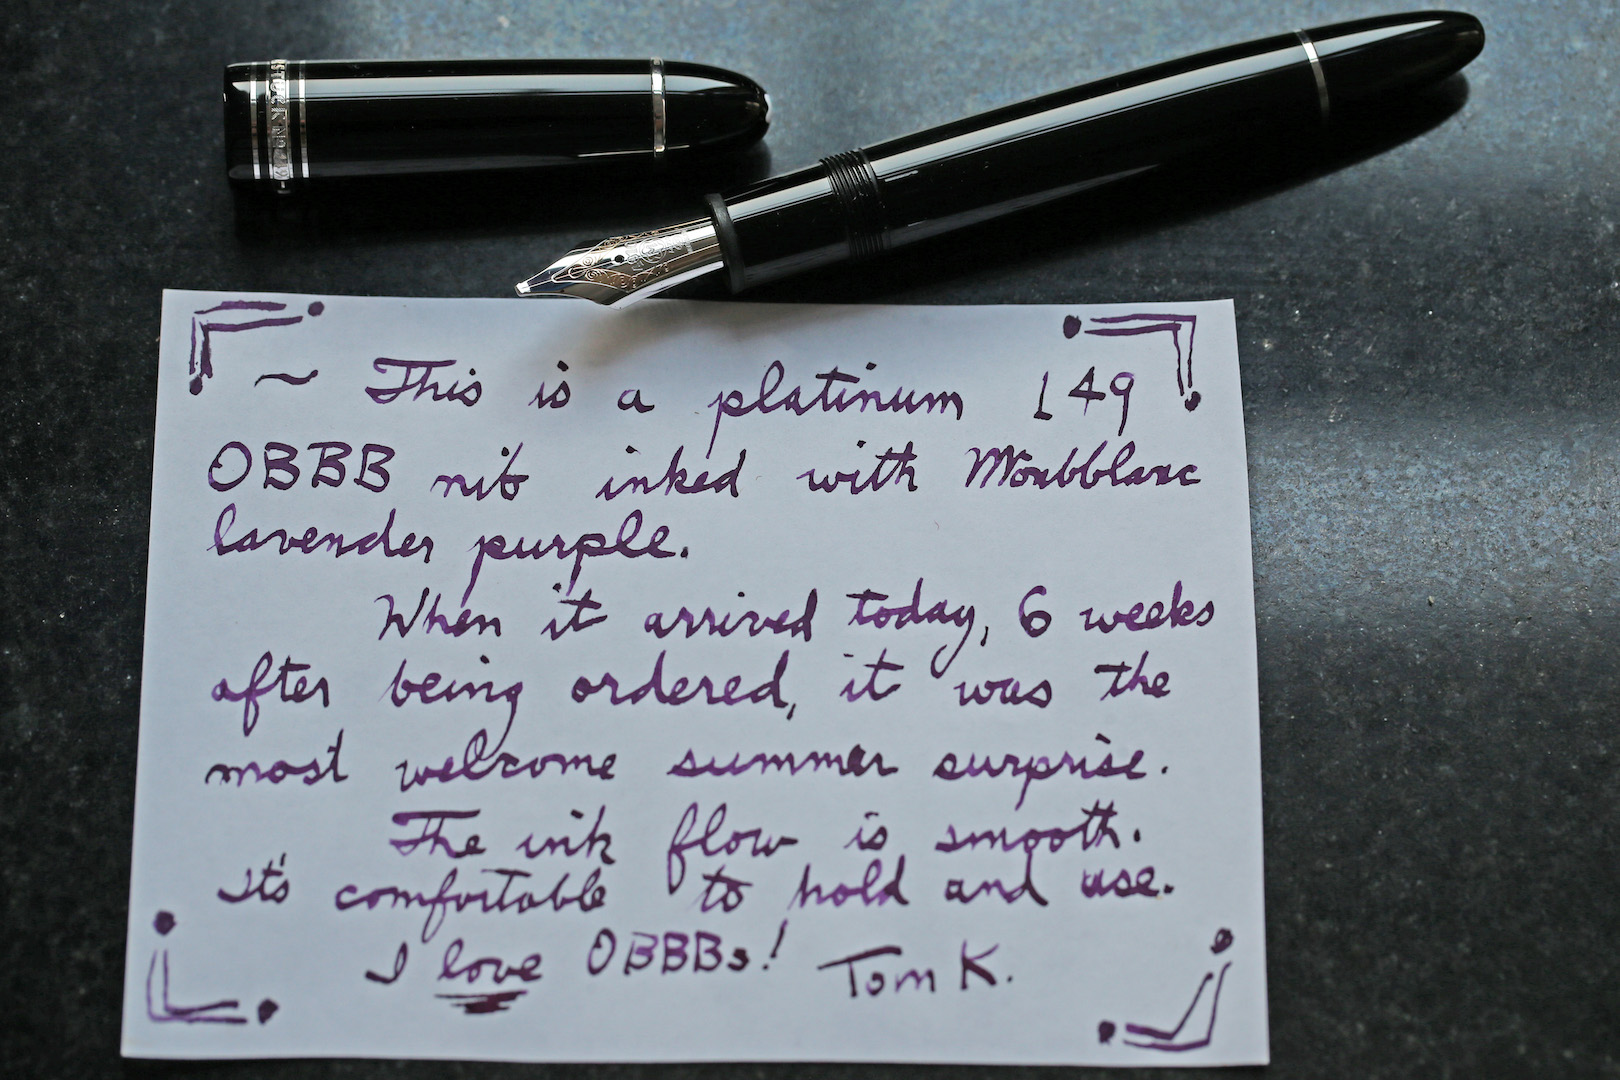 ~ This is a platinum 149
OBBB nib inked with Montblanc
lavender purple.
When it arrived today, 6 weeks
after being ordered, it was the
most welcome summer surprise.
The ink flow is smooth.
It's comfortable to hold and use.
I love OBBBs! Tom K.